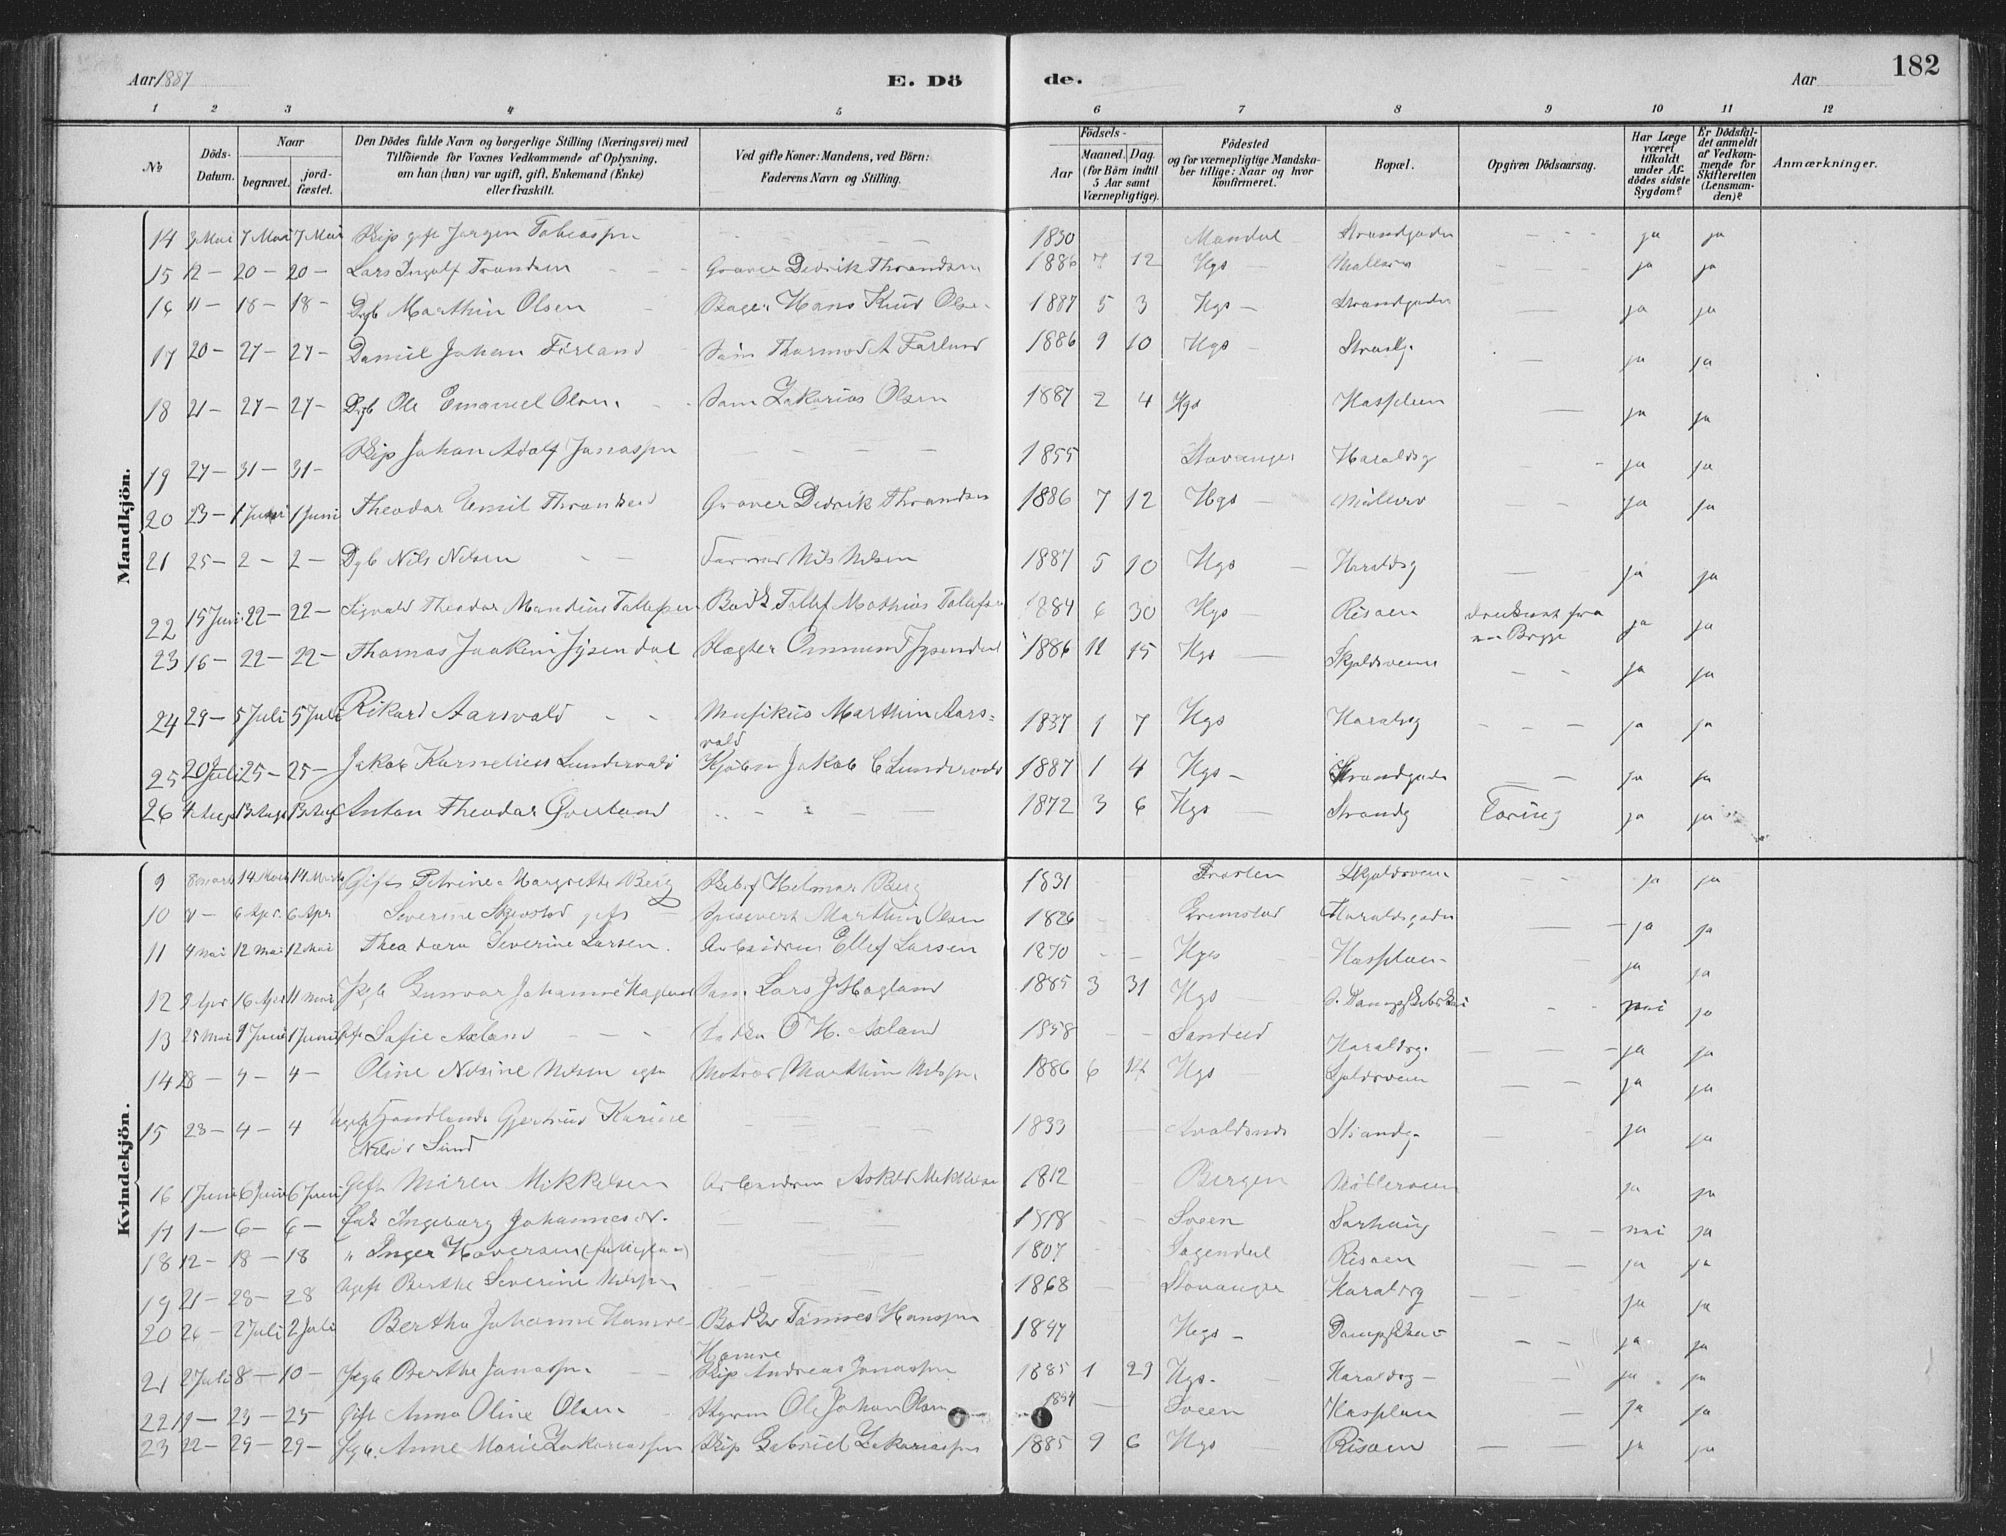 Aar 1887 E. Dö de. Aar 182
1 2 3 4 5 6 7 8 9 10 11 12
No Döds-Datum. Naar begravet. jord-fæstet. Den Dödes fulde Navn og borgerlige Stilling (Næringsvei) med Tilföiende for Voxnes Vedkommende af Oplysning, om han (hun) var ugift, gift, Enkemand (Enke) eller fraskilt. Ved gifte Koner: Mandens, ved Börn: Faderens Navn og Stilling. Födsels- Aar Maaned. Dag (for Börn indtil 5 Aar samt Værnepligtige). Födested og for værnepligtige Mandskaber tillige: Naar og hvor konfirmeret. Bopæl. Opgiven Dödsaarsag. Har Læge været tilkaldt under Afdödes sidste Sygdom? Er Dödsfaldet anmeldt af Vedkommende for Skifteretten (Lensmanden)? Anmærkninger.
Mandkjön.
14 3 Mai 7 Mai 7 Mai Skip gift Jørgen Tobiaspn 1830 Mandal Strandgaden ja ja
15 12 – 20 – 20 – Lars Ingolf Trandsen Graver Didrik Thrandsen 1886 7 12 Hgs ja ja
16 11 – 18 – 18 – Dgb Marthin Olsen Bager Hans Knud Olsen 1887 5 3 Hgs – Strandgaden ja ja
17 20 – 27 – 27 – Daniel Johan Førland Søm Thormod A Førland 1886 9 10 Hgs ja ja
18 21 – 27 – 27 – Dgb Ole Emanuel Olsen Søm Zakarias Olsen 1887 2 4 Hgs Hasseløen ja ja
19 27 – 31 – 31 – Skip Johan Adolf Jonaspn 1855 Stavanger Haraldsg ja ja
20 23 – 1 Juni 1 Juni Theodor Emil Thrandsen Graver Didrik Thrandsen 1886 7 12 Hgs ja ja
21 25 – 2 – 2 – Dgb Nils Nilsen Nils Nilsen 1887 5 10 Hgs Haraldsg ja ja
22 15 Juni 22 – 22 – Sigvald Theodor Mandius Tollefsen Tollef Mathias Tollefsen 1884 6 30 Hgs Risøen druknet fra en Brygge ja ja
23 16 – 22 – 22 – Thomas Joakim Jysendal Slagter Ommund Jysendal 1886 11 15 Hgs Skjoldsveien ja ja
24 29 – 5 Juli 5 Juli Rikard Aarsvold Musikus Marthin Aarsvold 1887 1 7 Hgs Haraldsg ja ja
25 20 Juli 25 – 25 – Jakob Kornelius Lundervold Kjøbm Jakob C Lundervold 1887 1 4 Hgs – Strandgaden ja ja
26 4 Aug 13 Aug 13 Aug Anton Theodor Øverland 1872 3 6 Hgs Strandg Tæring ja ja
Kvindekjön.
9 8 Marts 14 Marts 14 Marts Gift Petrine Margrethe Berg Helmar Berg 1831 Skjoldsveien ja ja
10 – 6 Apr. 6 Apr Severine Skjevstad gift Marthin Olsen 1826 Grimstad Haraldsgaden ja ja
11 4 Mai 12 Mai 12 Mai Theodora Severine Larsen Arbeidsm Ellef Larsen 1870 Hgs Hasseløen ja ja
12 9 Apr 16 Apr 11 Mai Pgb Gunvor Johanne Hagland Søm Lars J Hagland 1885 3 31 Hgs nei ja
13 25 Mai 1 Juni 1 Juni Gift Sofie Axland O H. Axland 1858 Sandeid Haraldsg. ja ja
14 28 – 4 – 4 – Oline Nilsine Nilsen Marthin Nilspn 1886 6 Hgs ja ja
15 28 – 4 – 4 Gjertrud Karine Sund 1833 Avaldsnes Strandg. ja ja
16 1 Juni 6 Juni 6 Juni Gift Maren Mikkelsen Arbeidsm Mikkelsen 1812 Bergen Mølleveien ja ja
17 1 – 6 – 6 – Enk Ingeborg Johannes N. 1818 Sveen Sørhaug nei ja
18 12 – 18 – 18 " Inger Haversen 1807 Sogendal Risøen ja ja
19 21 – 28 – 28 Ugift Berthe Severine Nilspn 1868 Stavanger Haraldsg ja ja
20 26 – 2 Juli 2 Juli Bertha Johanne Hamre Bødker Tønnes Hanspn Hamre Hgs – ja ja
21 2 Juli 8 – 10 – Pgb Berthe Jonaspn Skip Andreas Jonaspn 1885 1 29 Hgs. Haraldsg – ja ja
22 – 23 – 25 Gift Anna Oline Olsen Styrm Ole Johan Olsen 1854 Sveen Hasseløen ja ja
23 22 – 29 – 29 – Pgb. Anne Marie Zakariaspn Skip Gabriel Zakariaspn 1885 9 6 Hgs Risøen ja ja